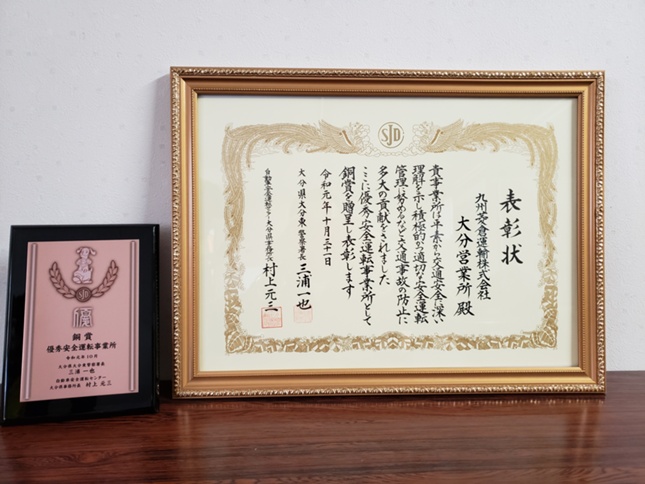 SJD
表彰状
九州菱倉運輸株式会社
大分営業所 殿
貴事業所は平素から交通安全に深い
理解を示し積極的かつ適切な安全運転
管理に努めるなど交通事故の防止に
多大の貢献をされました
ここに優秀安全運転事業所として
銅賞を贈呈し表彰します
令和元年十月三十一日
大分県大分東警察署長 三浦一也
自動車安全運転センター大分県事務所長 村上元三
SJD
銅賞
優秀安全運転事業所
令和元年10月
大分県大分東警察署長
三浦 一也
自動車安全運転センター
大分県事務所長 村上 元三